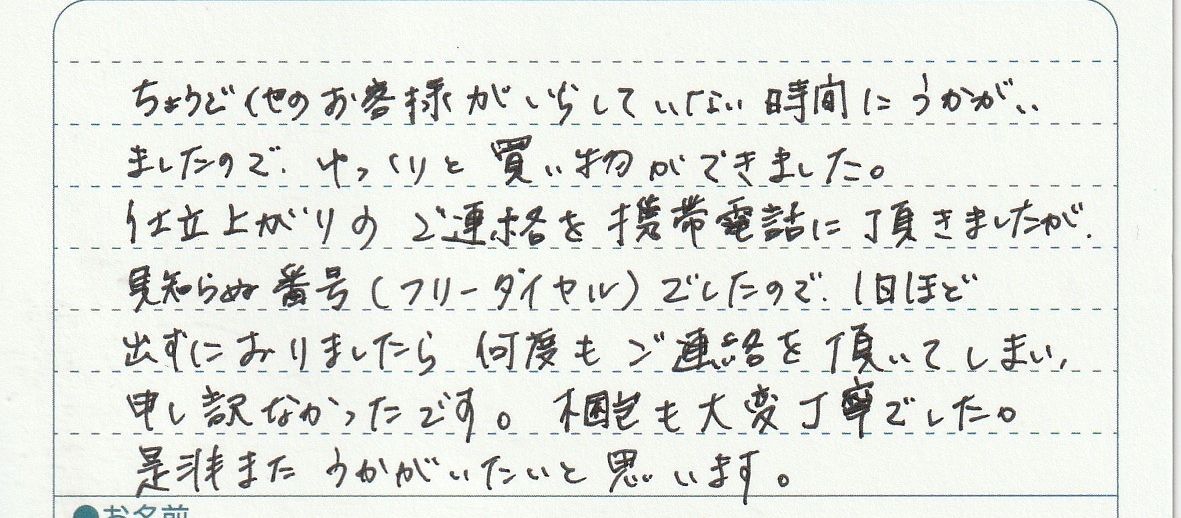 ちょうど他のお客様がいらしていない時間にうかがい
ましたので、ゆっくりと買い物ができました。
仕立上がりのご連絡を携帯電話に頂きましたが、
見知らぬ番号(フリーダイヤル)でしたので、1日ほど
出ずにおりましたら何度もご連絡を頂いてしまい、
申し訳なかったです。梱包も大変丁寧でした。
是非またうかがいたいと思います。
●お名前